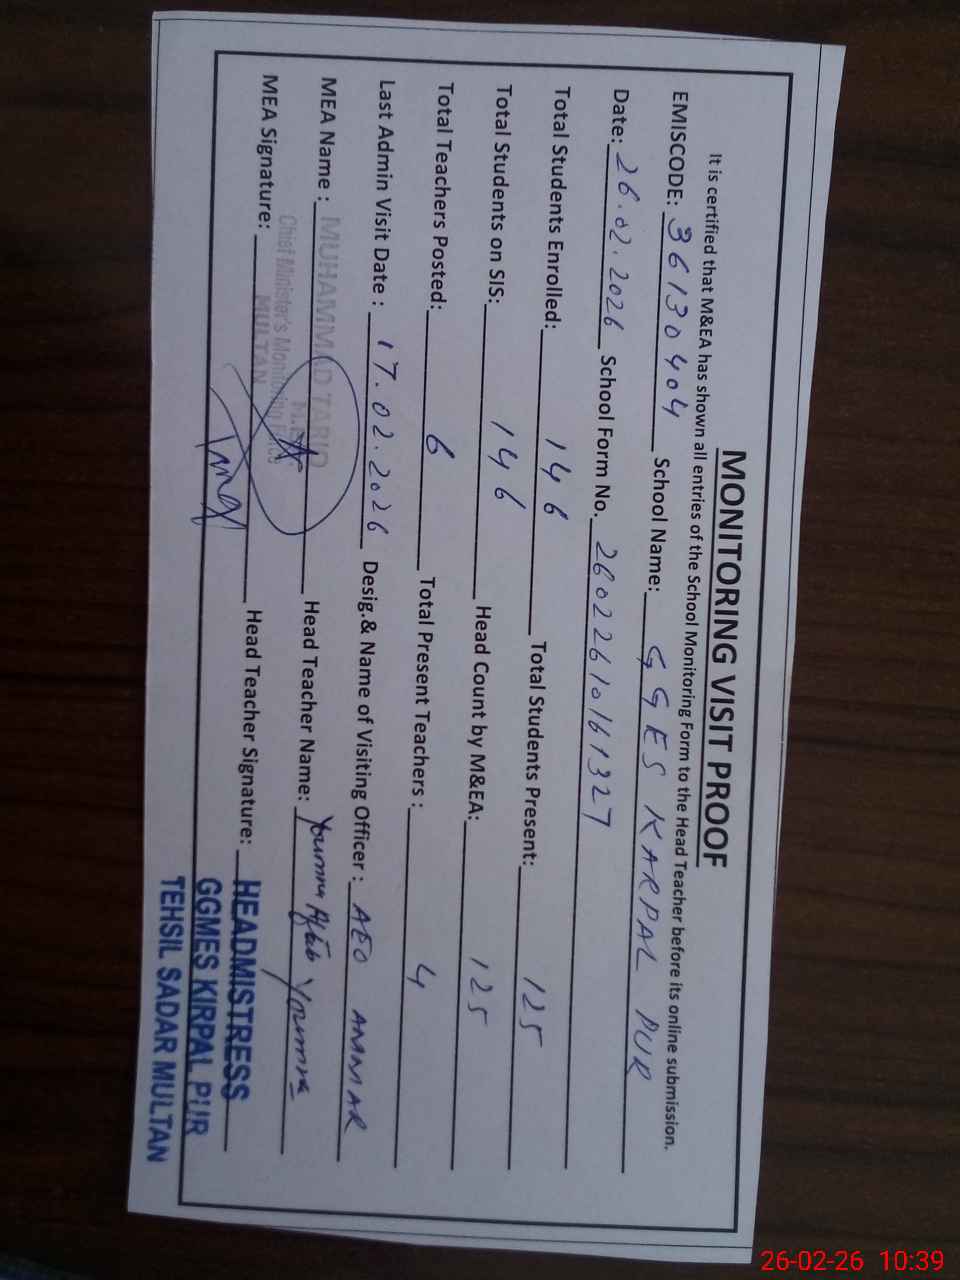 MONITORING VISIT PROOF
It is certified that M&EA has shown all entries of the School Monitoring Form to the Head Teacher before its online submission.
EMISCODE: 36130404 School Name: GGES KARPAL PUR
Date: 26.02.2026 School Form No. 26022610161327
Total Students Enrolled: 146 Total Students Present: 125
Total Students on SIS: 146 Head Count by M&EA: 125
Total Teachers Posted: 6 Total Present Teachers: 4
Last Admin Visit Date: 17.02.2026 Desig.& Name of Visiting Officer: AEO AMMAR
MEA Name: MUHAMMAD TARIQ Head Teacher Name: Youmna Aftab
Chief Minister's Monitoring Force
MULTAN
MEA Signature: Head Teacher Signature: Youmna
HEADMISTRESS
GGMES KIRPAL PUR
TEHSIL SADAR MULTAN
26-02-26 10:39